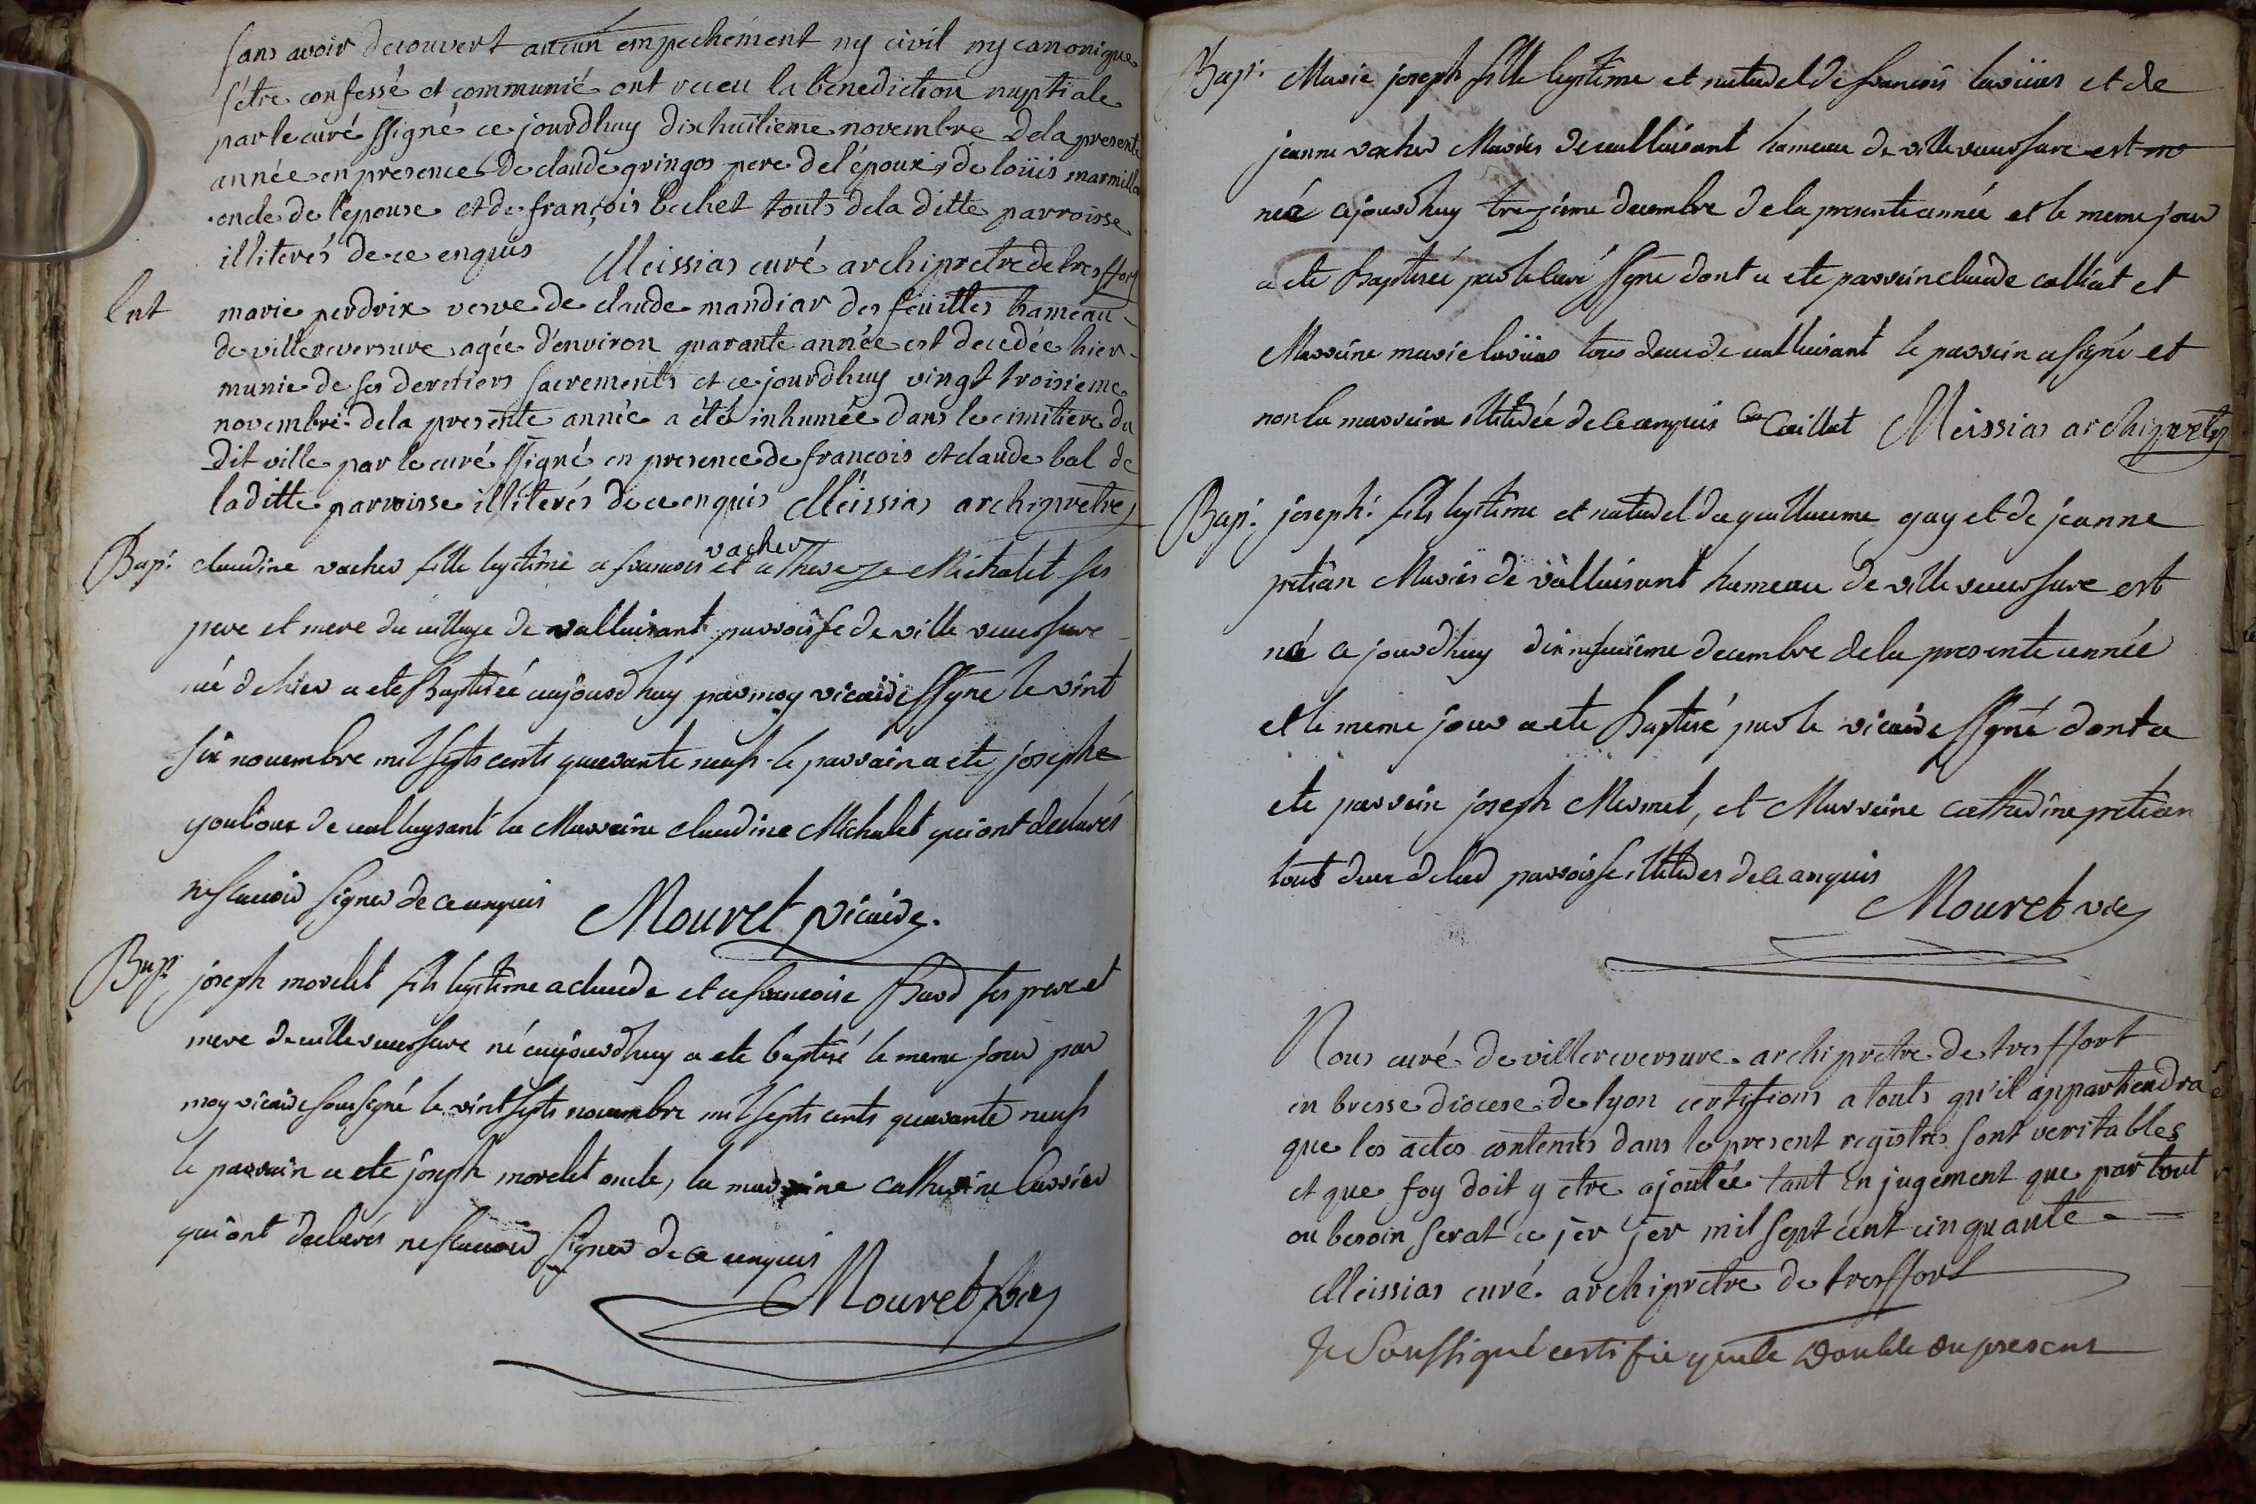 sans avoir decouvert aucun empechement ny civil ny canonique
s'étre confessé et communié ont receu la bénédiction nuptiale
par le curé ssigné ce jourdhuy dixhuitieme novembre dela presente
année en presence de claude gringos pere del'époux, de loüis marmillo
oncle de l'epouse et de françois bechet touts dela ditte parroisse
illiterés de ce enquis Meissias curé archiprètre de tresffort
Ent marie perdrix veuve de claude mandiar des feuilles hameau
de villereversure agée d'environ quarante année est decedée hier
munie de ses derniers sacrements et ce jourdhuy vingt troisieme
novembre dela presente année a été inhumée dans le cimitiere du
dit ville par le curé ssigné en presence de francois et claude bal de
laditte parroisse illiterés de ce enquis Meissias archiprètre
Bap: claudine vacher fille legitime a francois vacher et a therese Michalet ses
pere et mere du village de valluisant parroisse de ville reuersure
née d hier a ete Baptisée aujourdhuy par moy vicaire ssigné le vint
six nouembre mil septs cents quarante neuf le parrain a ete josephe
goulioux de ualluysant la Marraine claudine Michalet qui ont declarés
ne scauoir signer de ce enquis Mouret vicaire.
Bap: joseph morelet fils legitime a claude et a francoise Bard ses pere et
mere de uille reuersure né aujourdhuy a ete baptisé le meme jour par
moy vicaire soussigné le vint septs nouembre mil septs cents quarante neuf
le parrain a ete joseph morelet oncle, la marraine catherine
qui ont declarés ne scauoir signer de ce enquis
Mouret vic
Bap: Marie joseph fille legitime et naturel de francois et de
jeanne vacher Mariés de ualluisant hameau de ville reuersure est
née ce jourdhuy trezieme decembre de la presente année et le meme jour
a ete Baptisée par le curé ssigné dont a ete parrain claude calliat et
Marraine marie tous deux de ualluisant le parrain a signé et
non la marraine illiterée de ce enquis Caillat Meissias archipretre
Bap: joseph: fils legitime et naturel de guillaume gay et de jeanne
pretian Mariés de valluisant hameau de ville reuersure est
né ce jourdhuy dix neufuieme decembre dela presente année
et le meme jour a ete Baptisé par le vicaire ssigné dont a
ete parrain joseph Mermet, et Marraine catherine pretian
tout deux de lad parroisse illiteres de ce enquis
Mouret vic
Nous curé de villereversure archiprètre de tresffort
en bresse diocese de lyon certifions a touts qu'il appartiendra
que les actes contenus dans le present registres sont veritables
et que foy doit y etre ajoutée tant en jugement que par tout
ou besoin serat ce jer jer mil sept cent cinquante
Meissias curé archiprètre de tresffort
Je Soussigné certifie que le Double du present